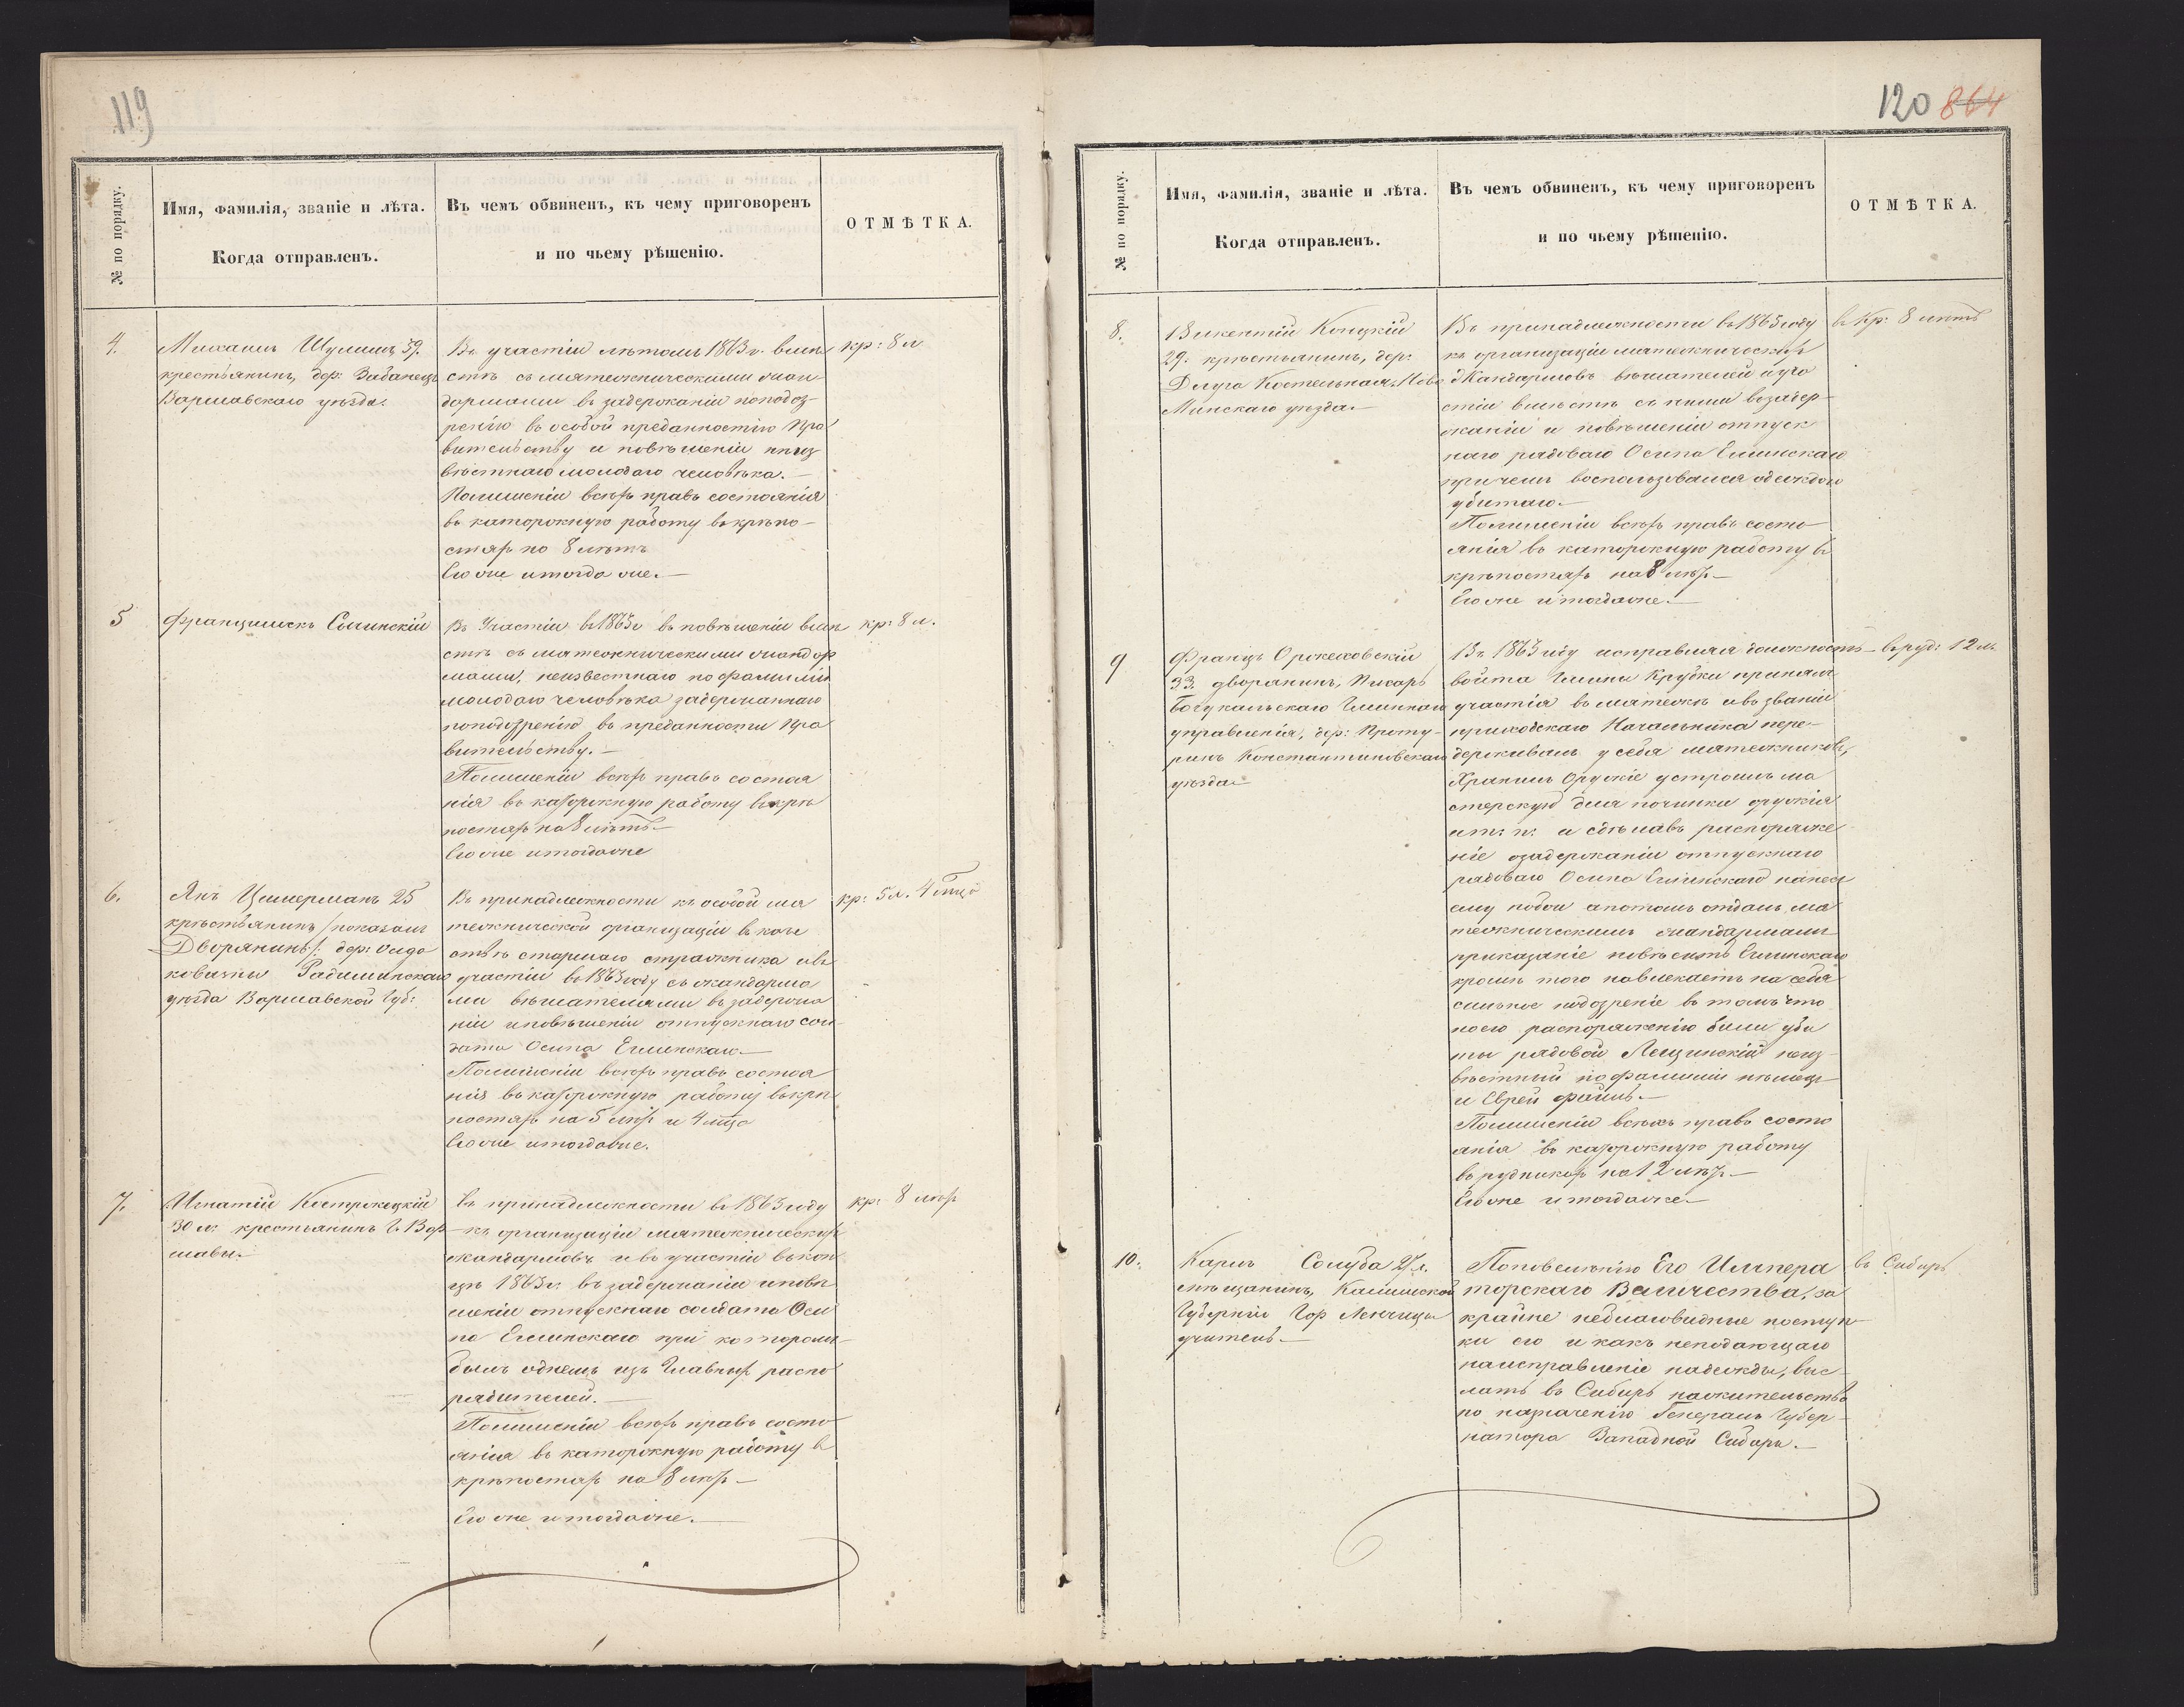 119
№ по порядку.
Имя, фамилія, званіе и лѣта.
Когда отправленъ.
Въ чемъ обвиненъ, къ чему приговоренъ
и по чьему рѣшенію.
ОТМѢТКА.
4.
Михаилъ Шулимъ 59.
крестьянинъ, дер:
Варшавскаго уѣзда.
Въ участіи лѣтомъ 1863 г. вмѣ
стѣ съ мятежническими жан
дармами въ задержаніи поподоз-
рѣнію въ особой преданностію Пра
вительству и повѣшеніи неиз
вѣстнаго молодаго человѣка.—
Полишеніи всѣхъ правъ состоянія
въ каторжную работу въ крѣпо-
стяхъ по 8 лѣтъ
Его же и тогда же.—
кр: 8 л
5
Францишекъ
Въ Участіи въ 1863 г въ повѣшеніи вмѣ
стѣ съ мятежническими жандар
мами, неизвестнаго по фамиліи
молодаго человѣка задержаннаго
поподозрѣнію въ преданности Пра
вительству.—
Полишеніи всѣхъ правъ состоя
нія въ каторжную работу въ крѣ
постяхъ на 8 лѣтъ.—
Его же и тогда же
кр: 8 л.
6.
Янъ Цимерманъ 25
крѣстьянинъ /показалъ
Дворянинъ/: дер:
Радиминскаго
уѣзда Варшавской Губ:
Въ принадлежности къ особой мя
тежнической организаціи въ каче
ствѣ старшаго стражника и въ
участіи въ 1863 году съ жандарма
ми вѣшателями въ задержа
ніи и повѣшеніи отпускнаго сол
дата Осипа Еглинскаго.—
Полишеніи всѣхъ правъ состоя
нія въ каторжную работу въ крѣ
постяхъ на 5 лѣтъ и 4 мѣца
Его же и тогда же.
кр: 5 л. 4 мѣца
7.
Игнатій
30 л: крестьянинъ г. Вар
шавы.—
Въ принадлежности въ 1863 году
къ организаціи мятежническихъ
жандармовъ и въ участіи въ кон
цѣ 1863 г. въ задержаніи и повѣ
шеніи отпускнаго солдата Оси
па Еглинскаго при которомъ
былъ однимъ изъ Главныхъ распо
рядителей.—
Полишеніи всѣхъ правъ состо
янія въ каторжную работу въ
крѣпостяхъ на 8 лѣтъ—
Его же и тогда же.—
кр: 8 лѣтъ
120 864
№ по порядку.
Имя, фамилія, званіе и лѣта.
Когда отправленъ.
Въ чемъ обвиненъ, къ чему приговоренъ
и по чьему рѣшенію.
ОТМѢТКА.
8.
Викентій Концкій
29. крѣстьянинъ, дер:
Длуга Костельная, Ново
Минскаго уѣзда.—
Въ принадлежности въ 1863 году
къ организаціи мятежническихъ
Жандармовъ вѣшателей и уча
стіи вмѣстѣ съ ними въ задер
жаніи и повѣшеніи отпуск
наго рядоваго Осипа Еглинскаго
причемъ воспользовался одеждою
убитаго.—
Полишеніи всѣхъ правъ состо
янія въ каторжную работу въ
крѣпостяхъ на 8 лѣтъ—
Его же и тогда же.—
въ Кр: 8 лѣтъ
9
Францъ Оржеховскій
33. дворянинъ, Писарь
Гминнаго
управленія, дер:
Константиновскаго
уѣзда—
Въ 1863 году исправляя должность
войта Гмины Крубки принялъ
участія въ мятежѣ и въ званіи
приходскаго Начальника пере-
держивалъ у себя мятежниковъ,
Хранилъ Оружіе устроилъ ма
стерскую для починки оружія
и т. п. и сдѣлавъ распоряже
ніе о задержаніи отпускнаго
рядоваго Осипа Еглинскаго нанесъ
ему побои а потомъ отдалъ мя
тежническимъ жандармамъ
приказаніе повѣсить Еглинскаго
кромѣ того навлекаетъ на себя
сильное подозрѣніе въ томъ что
по его распоряженію были уби
ты рядовой Лещинскій неиз
вѣстный по фамиліи нѣмецъ
и Еврей
Полишеніи всѣхъ правъ состо
янія въ каторжную работу
въ рудникахъ на 12 лѣтъ—
Его же и тогда же—
въ руд: 12 л.
10.
Карлъ Солуба 27 л.
мѣщанинъ, Калишской
Губерніи Гор Ленчицы
учитель.—
Поповелѣнію Его Импера
торскаго Величества, за
крайне неблаговидные поступ
ки его и какъ неподающаго
наисправленіе надежды, выс
лать въ Сибирь нажительство
по назначенію Генералъ Губер-
натора Западной Сибири.—
въ Сибирь